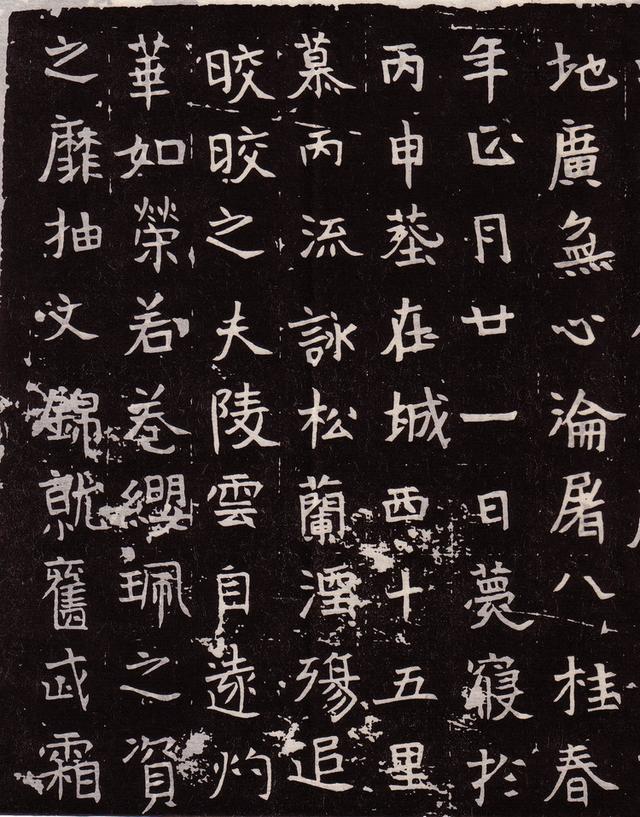 地廣無心淪屠八桂春
年正月廿一日薨寢於
丙申塟在城西十五里
慕丙流詠松蘭湮殤追
晈晈之夫陵雲自遠灼
華如榮若巻纓珮之資
之靡抽文錦就舊武霜